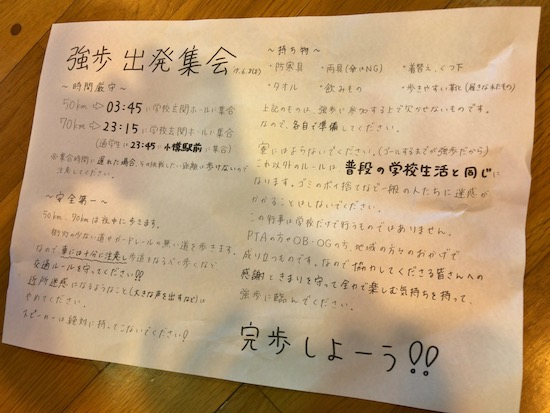 強歩 出発集会
～時間厳守～
50km ⇨ 03:45に学校玄関ホールに集合
70km ⇨ 23:15に学校玄関ホールに集合
(通学生は 23:45に小樽駅前に集合)
※集合時間に遅れた場合、その挑戦したい距離は歩けないので
注意してください。
～安全第一～
50km、70kmは夜中に歩きます。
街灯の少ない道やガードレールの無い道を歩きます。
なので、車には十分に注意し歩道をなるべく歩くなど
交通ルールを守ってください!!
近所迷惑になるようなこと(大きな声を出すなど)は
やめてください。
スピーカーは絶対に持ってこないでください!
～持ち物～
・防寒具 ・雨具(傘はNG) ・着替え、くつ下
・タオル ・飲みもの ・歩きやすい靴(履きなれたもの)
上記のものは、強歩に参加する上で欠かせないものです。
なので、各自で準備してください。
車にはのらないでください。(ゴールするまでが強歩だから)
これ以外のルールは普段の学校生活と同じに
なります。ゴミのポイ捨てなど一般の人たちに迷惑が
かかることはしないでください。
この行事は学校だけで行うものではありません。
PTAの方やOB・OGの方、地域の方々のおかげで
成り立つものです。なので協力してくださる皆さんへの
感謝ときまりを守って全力で楽しむ気持ちを持って、
強歩に臨んでください。
完歩しよーう!!